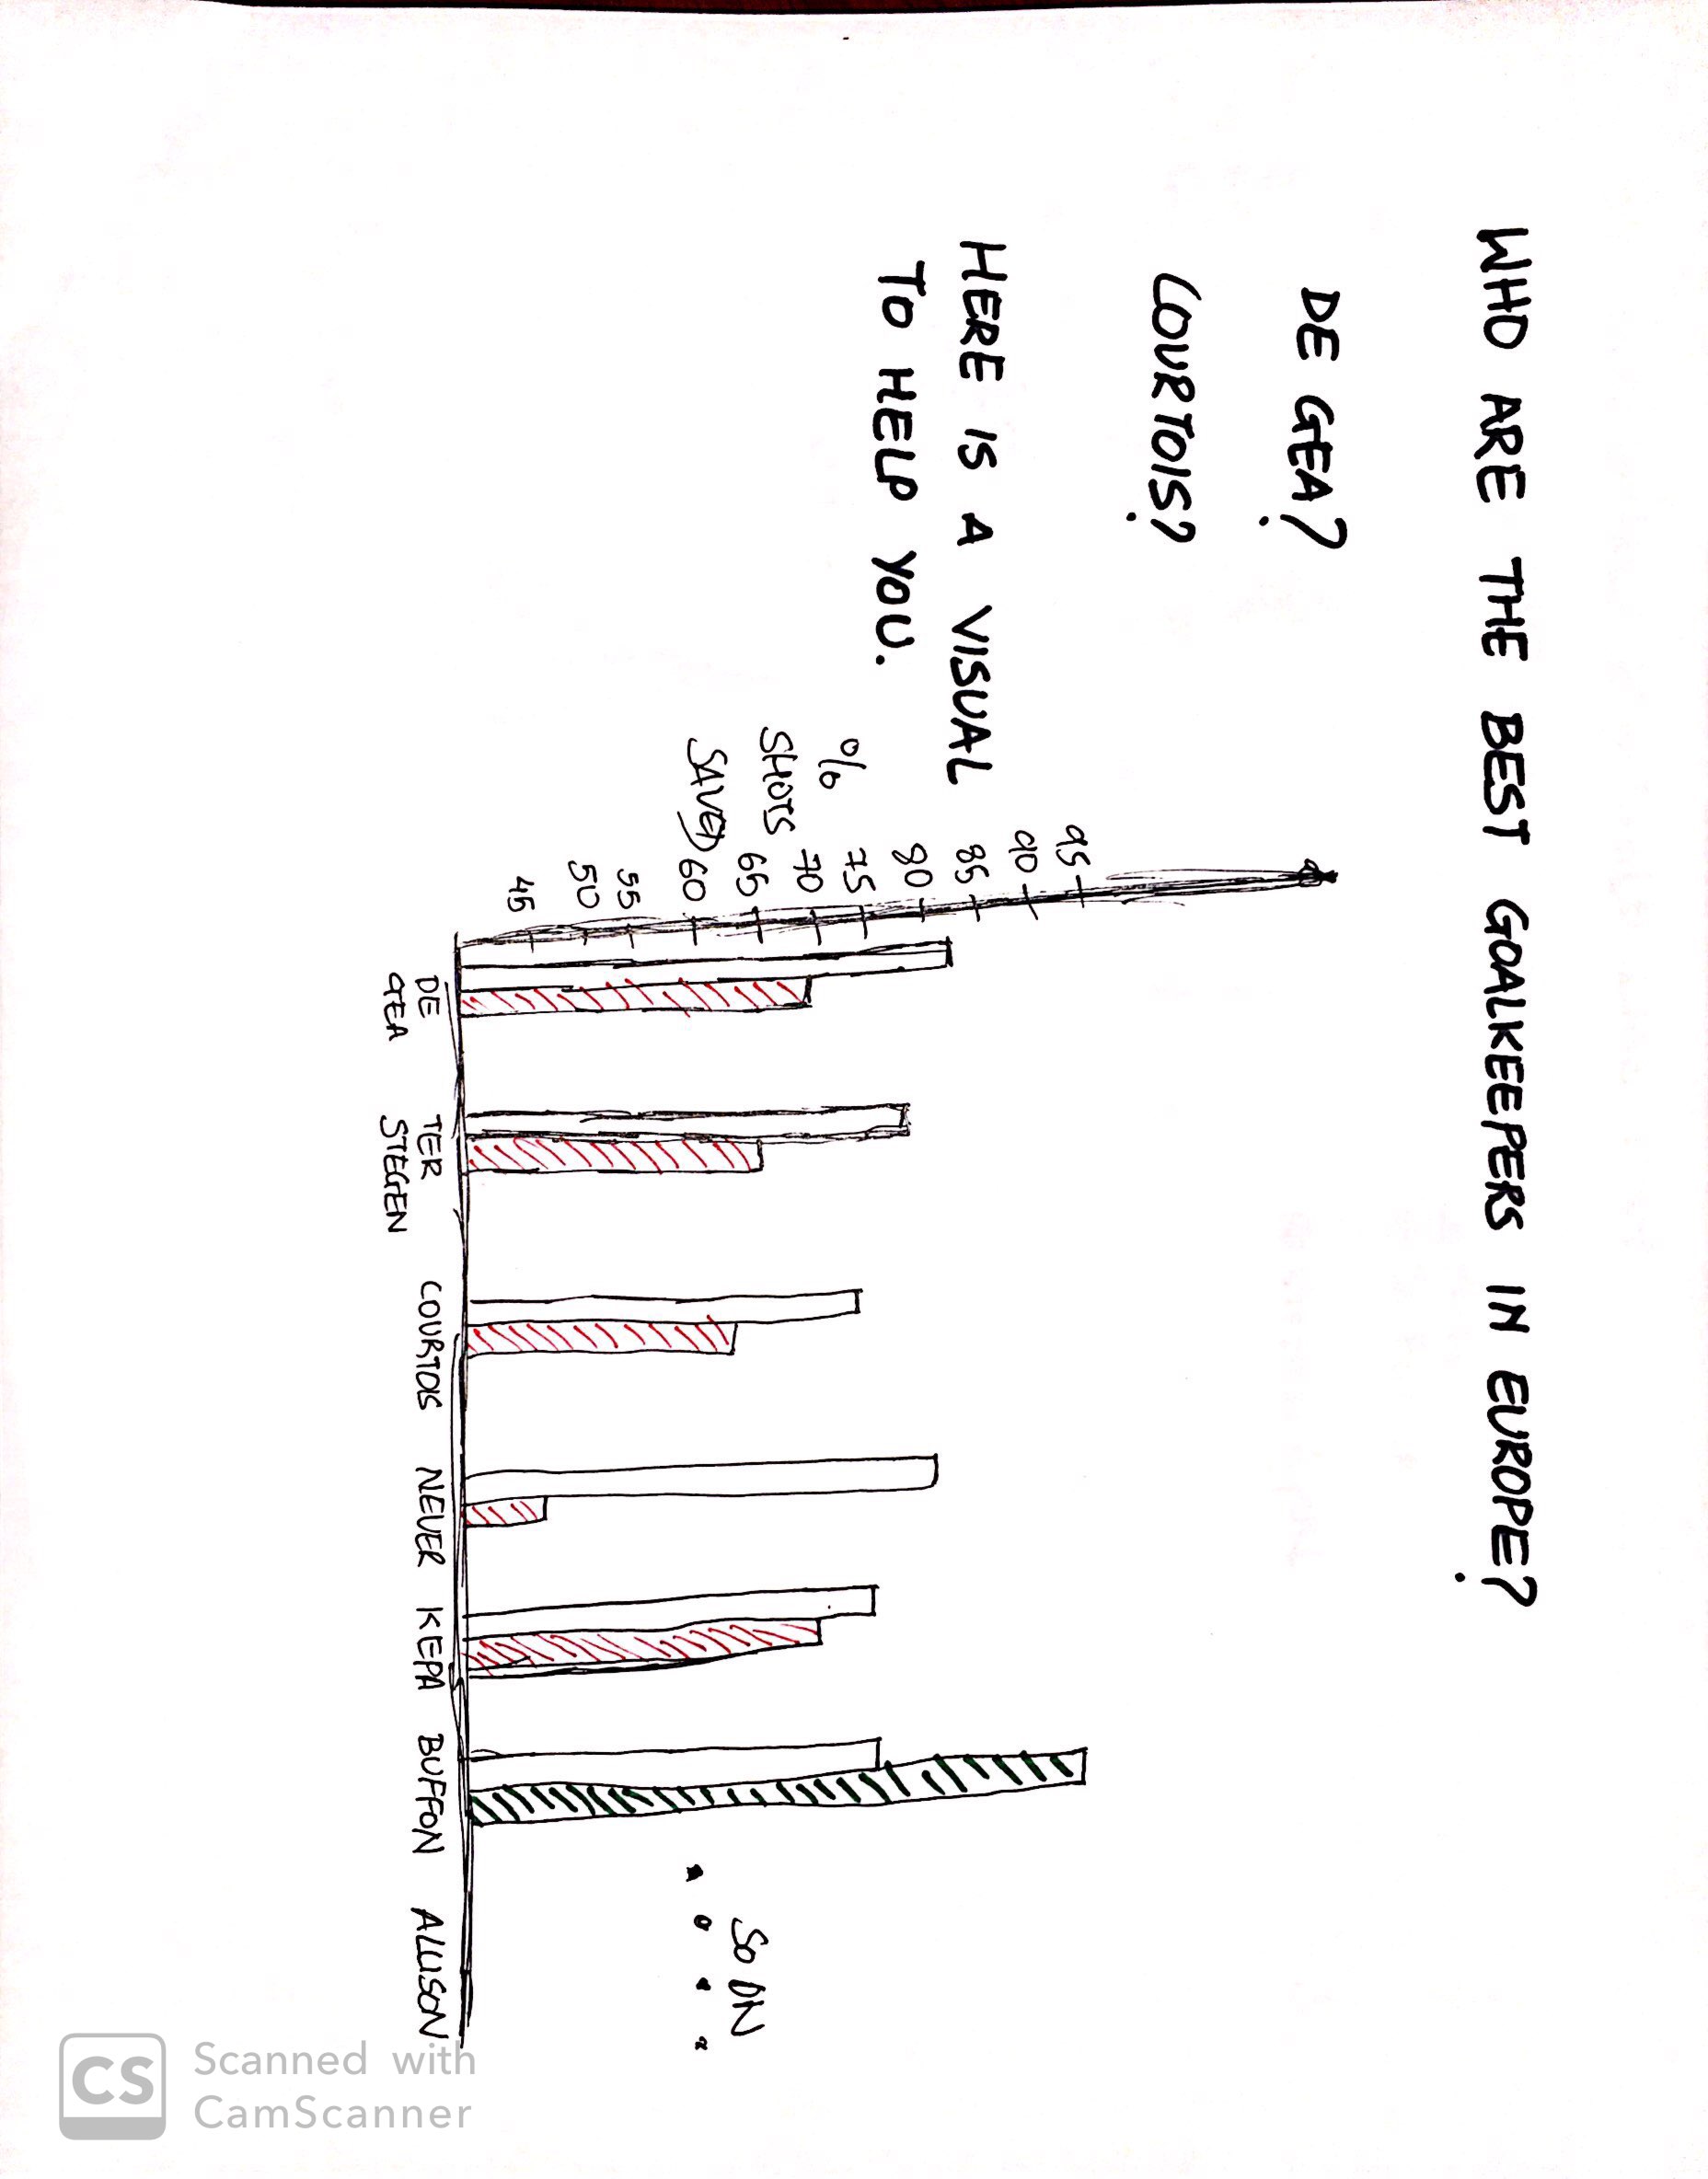 WHO ARE THE BEST GOALKEEPERS IN EUROPE?
DE GEA?
COURTOIS?
HERE IS A VISUAL
TO HELP YOU.
95
90
85
80
75
70
65
60
55
50
45
%
SHOTS
SAVED
SO ON
DE
GEA
TER
STEGEN
COURTOIS
NEUER
KEPA
BUFFON
ALLISON
CS
Scanned with
CamScanner